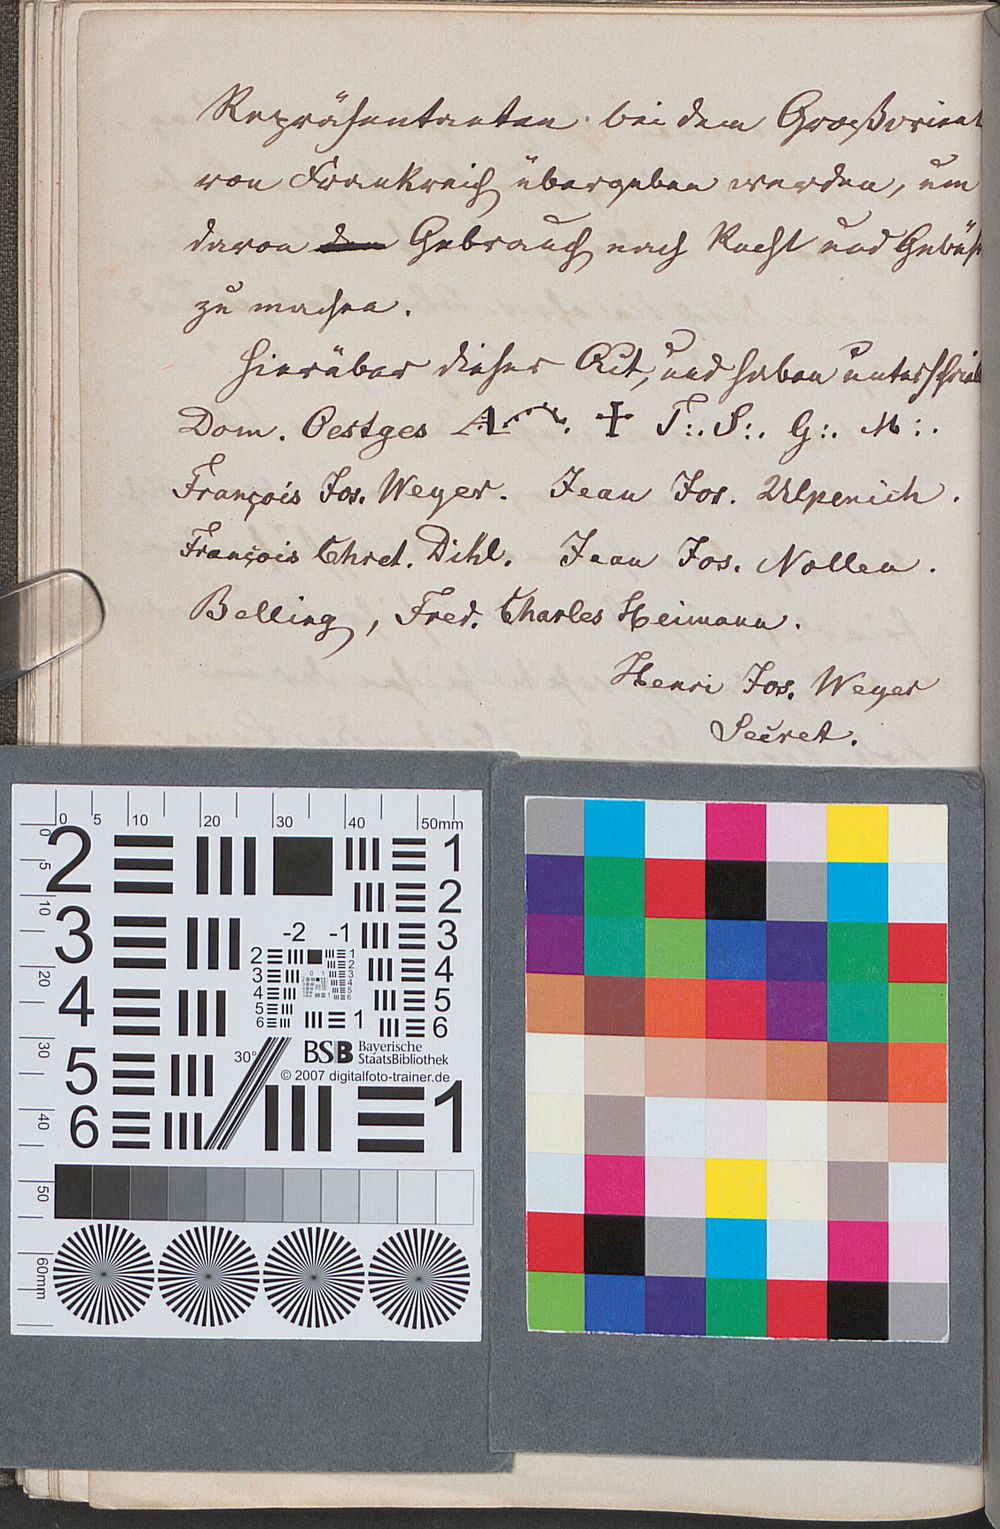 Repräsentanten bei dem Großorient
von Frankreich übergeben werden, um
davon den Gebrauch nach Recht und Gebüh
zu machen.
Hierüber dieser Act, und haben unterschrieb
Dom. Oestges A. ✝ T:. S:. G:. M:.
François Jos. Weyer. Jean Jos. Ulpenich.
François Chret. Dihl. Jean Jos. Nollen.
Belling, Fred. Charles Heimann.
Henri Jos. Weyer
Secret.
0 5 10 20 30 40 50mm
0 5 10 20 30 40 50 60mm
2 3 4 5 6
1 2 3 4 5 6
-2 -1
2 3 4 5 6
1 2 3 4 5 6
1
30°
BSB Bayerische
StaatsBibliothek
© 2007 digitalfoto-trainer.de
1